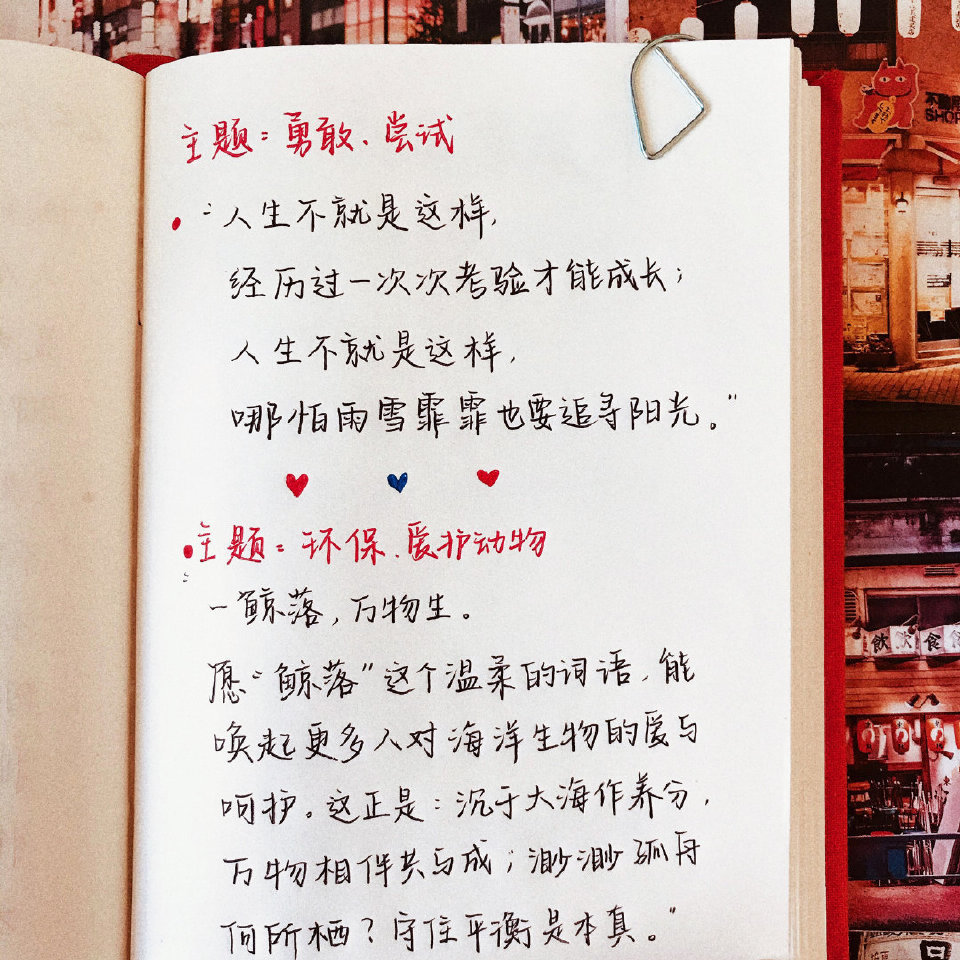 主题：勇敢、尝试
“人生不就是这样，
经历过一次次考验才能成长；
人生不就是这样，
哪怕雨雪霏霏也要追寻阳光。”
主题：环保、爱护动物
一鲸落，万物生。
愿“鲸落”这个温柔的词语，能
唤起更多人对海洋生物的爱与
呵护。这正是：沉于大海作养分，
万物相伴共与成；渺渺孤舟
何所栖？守住平衡是本真。”
SHOP
飲 飲 食 食